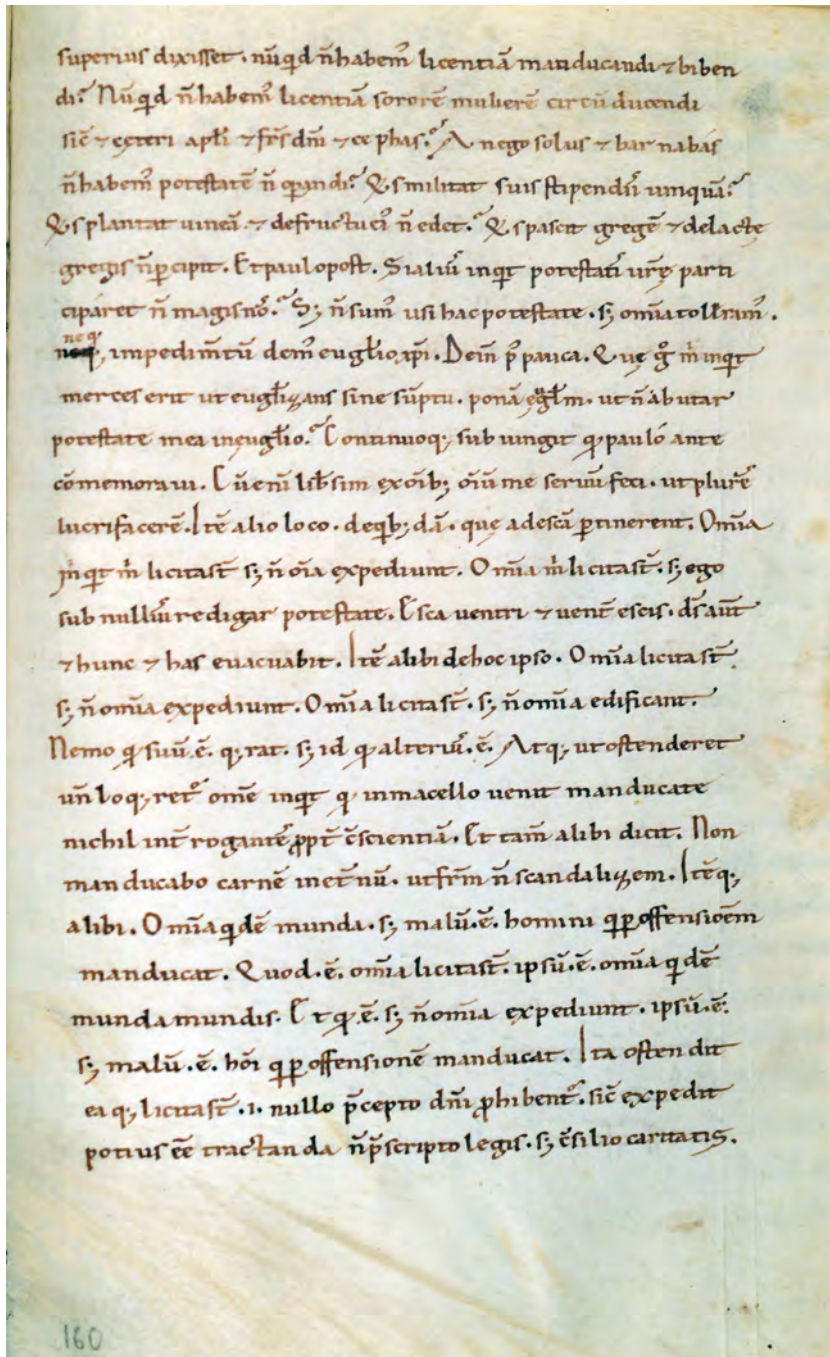 superius dixisset. nūqd n̄ habem᷒ licentiā manducandi ⁊ biben
di? Nūqd n̄ habem᷒ licentiā sororē mulierē circū ducendi
sic̄ ⁊ cęteri apl̄i ⁊ fr̄s dn̄i ⁊ cephas? A nego solus ⁊ barnabas
n̄ habem᷒ potestatē n̄ opandi? Qs militat suis stipendiis umquā?
Qs plantat uineā. ⁊ defructu ei᷒ n̄ edet? Qs pascit gregē ⁊ delacte
gregis n̄ ꝑcipit. Et paulopost. Si alii inqt potestati᷒ ur̄ę parti
cipāret n̄ magis nō? S; n̄ sum᷒ usi hac potestate. s; om̄ia tolleram᷒.
neq; impedim̄tū dem᷒ euglio xp̄i. Dein̄ p᷒ pauca. Quę g̊ m̄ inqt
merces erit ut eugl̄izans sine sūptu. ponā ęgl̄m. ut n̄ abutar
potestate mea in eugl̄io? Continuoq; subiungit qđ pauló ante
cōmemoraui. Cū eni līb sim ex oīb; oīum me seruū feci. ut plurē᷒
lucrifacerē. Itē alio loco. de qb; dā. que ad escā ꝑtinerent. Om̄ia
inqt m̄ licita st̄ s; n̄ oīa expediunt. Om̄ia m̄ licita st̄. s; ego
sub nulli᷒ redigar potestate. Esca uentri ⁊ uent̄ escis. ds̄ aūt
⁊ hunc ⁊ has euacuabit. Itē alibi dehoc ipso. Om̄ia licita st̄
s; n̄ om̄ia expediunt. Om̄ia licita st̄. s; n̄ om̄ia edificant.
Nemo qđ suū .ē. q;rat. s; id qđ alteri᷒ .ē. Atq; ut ostenderet
un̄ loq;ret᷒ om̄e inqt qđ inmacello uenit manducate
nichil int̄rogantē᷒ ꝓpt̄ c̄scientiā. Et tam̄ alibi dicit. Non
manducabo carnē inet̄nū. ut fr̄m n̄ scandalizem. Itēq;
alibi. Om̄ia qdē munda. s; malū .ē. homini q ꝑ offensioēm
manducat. Quod .ē. om̄ia licita st̄. ipsū .ē. om̄ia qdē
munda mundis. Et qđ .ē. s; n̄ om̄ia expediunt. ipsū .ē.
s; malū .ē. hōi q ꝑ offensionē manducat. Ita ostendit
ea q; licita st̄ .i. nullo p̄cepto dn̄i ꝓhibent᷒. sic̄ expedit
potius eē tractanda n̄ p̄scripto legis. s; c̄silio caritatis.
160